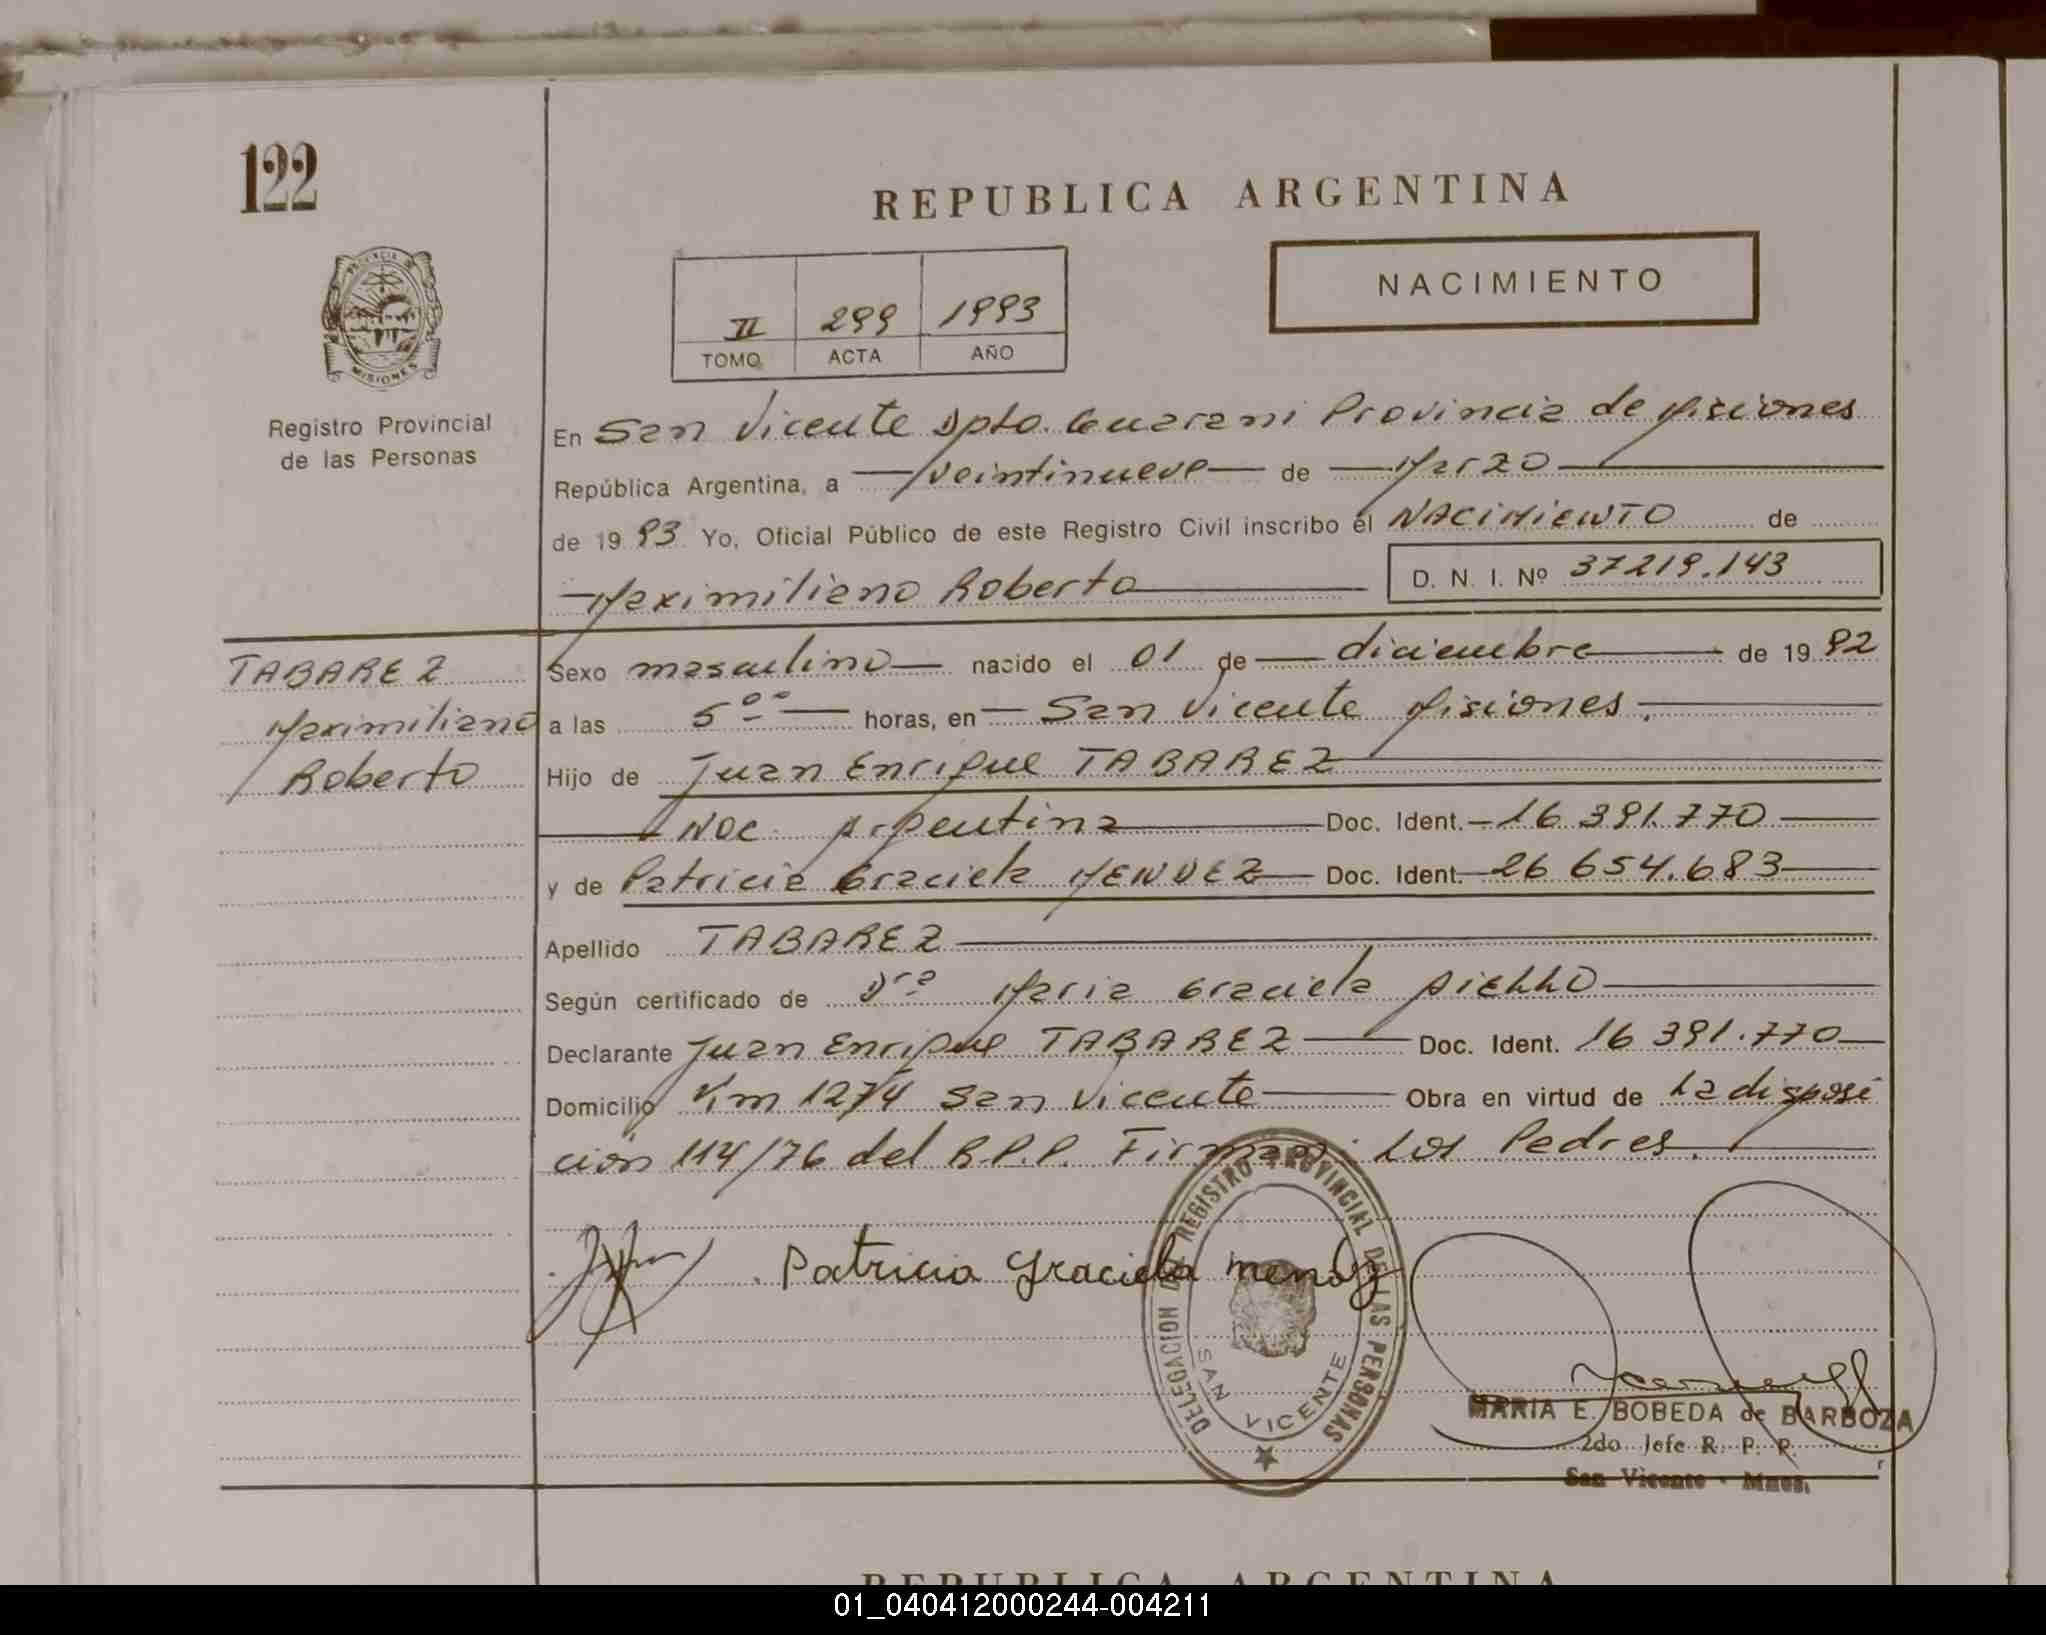 122
REPUBLICA ARGENTINA
NACIMIENTO
II 299 1993
TOMO ACTA AÑO
PROVINCIA DE
MISIONES
Registro Provincial
de las Personas
En San Vicente Dpto. Guarani Provincia de Misiones
República Argentina, a veintinueve de Marzo
de 1993 Yo, Oficial Público de este Registro Civil inscribo el NACIMIENTO de
Maximiliano Roberto D. N. I. Nº 37219.143
TABAREZ
Maximiliano
Roberto
Sexo masculino nacido el 01 de diciembre de 1992
a las 5ºº horas, en San Vicente Misiones.
Hijo de Juan Enrique TABAREZ
Nac. Argentina Doc. Ident. 16 391.770
y de Patricia Graciela MENDEZ Doc. Ident. 26 654.683
Apellido TABAREZ
Según certificado de Dra Maria Graciela AIELLO
Declarante Juan Enrique TABAREZ Doc. Ident. 16 391.770
Domicilio Km 1274 San Vicente Obra en virtud de La disposi
ción 114/76 del R.P.P. Firman: Los Padres.
Patricia Graciela Mendez
DELEGACION DEL REGISTRO PROVINCIAL DE LAS PERSONAS
SAN VICENTE
MARIA E. BOBEDA de BARBOZA
2do Jefe R. P. P.
San Vicente - Mnes.
REPUBLICA ARGENTINA
01_040412000244-004211